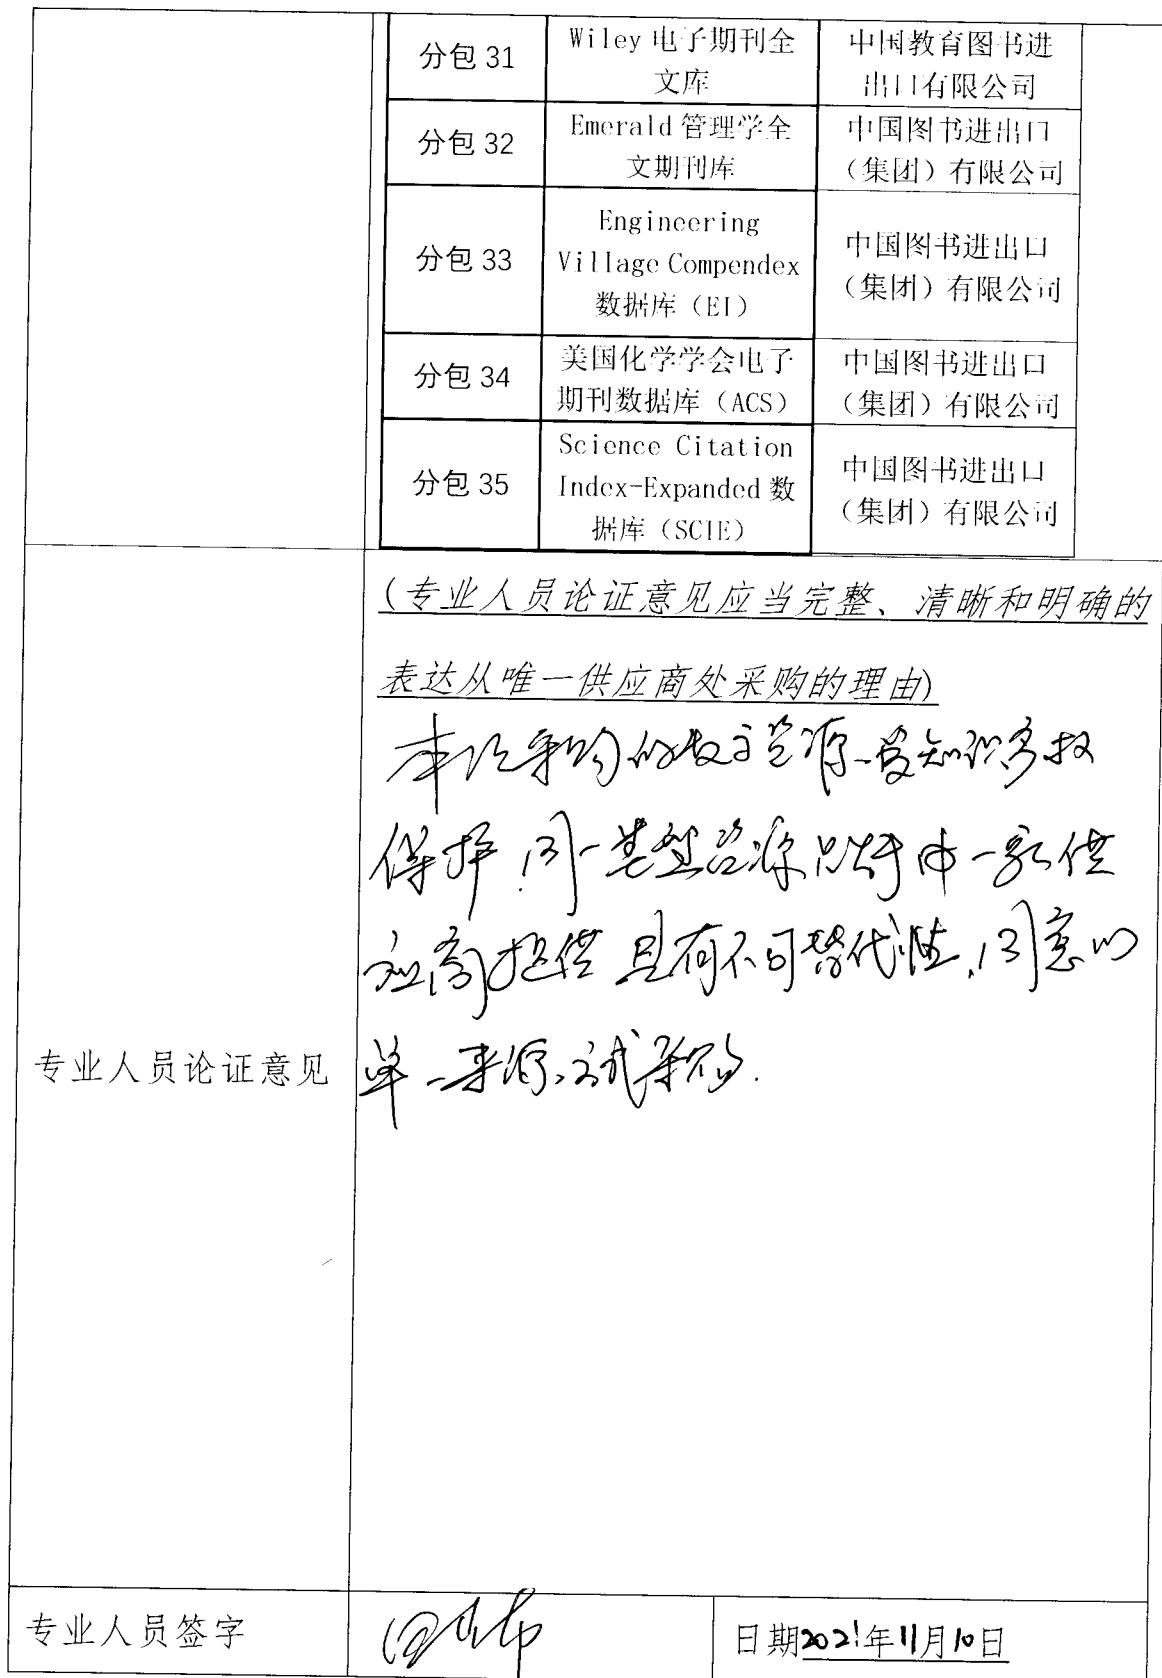 分包 31
Wiley 电子期刊全
文库
中国教育图书进
出口有限公司
分包 32
Emerald 管理学全
文期刊库
中国图书进出口
（集团）有限公司
分包 33
Engineering
Village Compendex
数据库（EI）
中国图书进出口
（集团）有限公司
分包 34
美国化学学会电子
期刊数据库（ACS）
中国图书进出口
（集团）有限公司
分包 35
Science Citation
Index-Expanded 数
据库（SCIE）
中国图书进出口
（集团）有限公司
专业人员论证意见
(专业人员论证意见应当完整、清晰和明确的
表达从唯一供应商处采购的理由)
本次采购的数字资源受知识产权
保护,同一类型资源只能由一家供
应商提供 具有不可替代性,同意以
单一来源方式采购.
专业人员签字
日期2021年11月10日